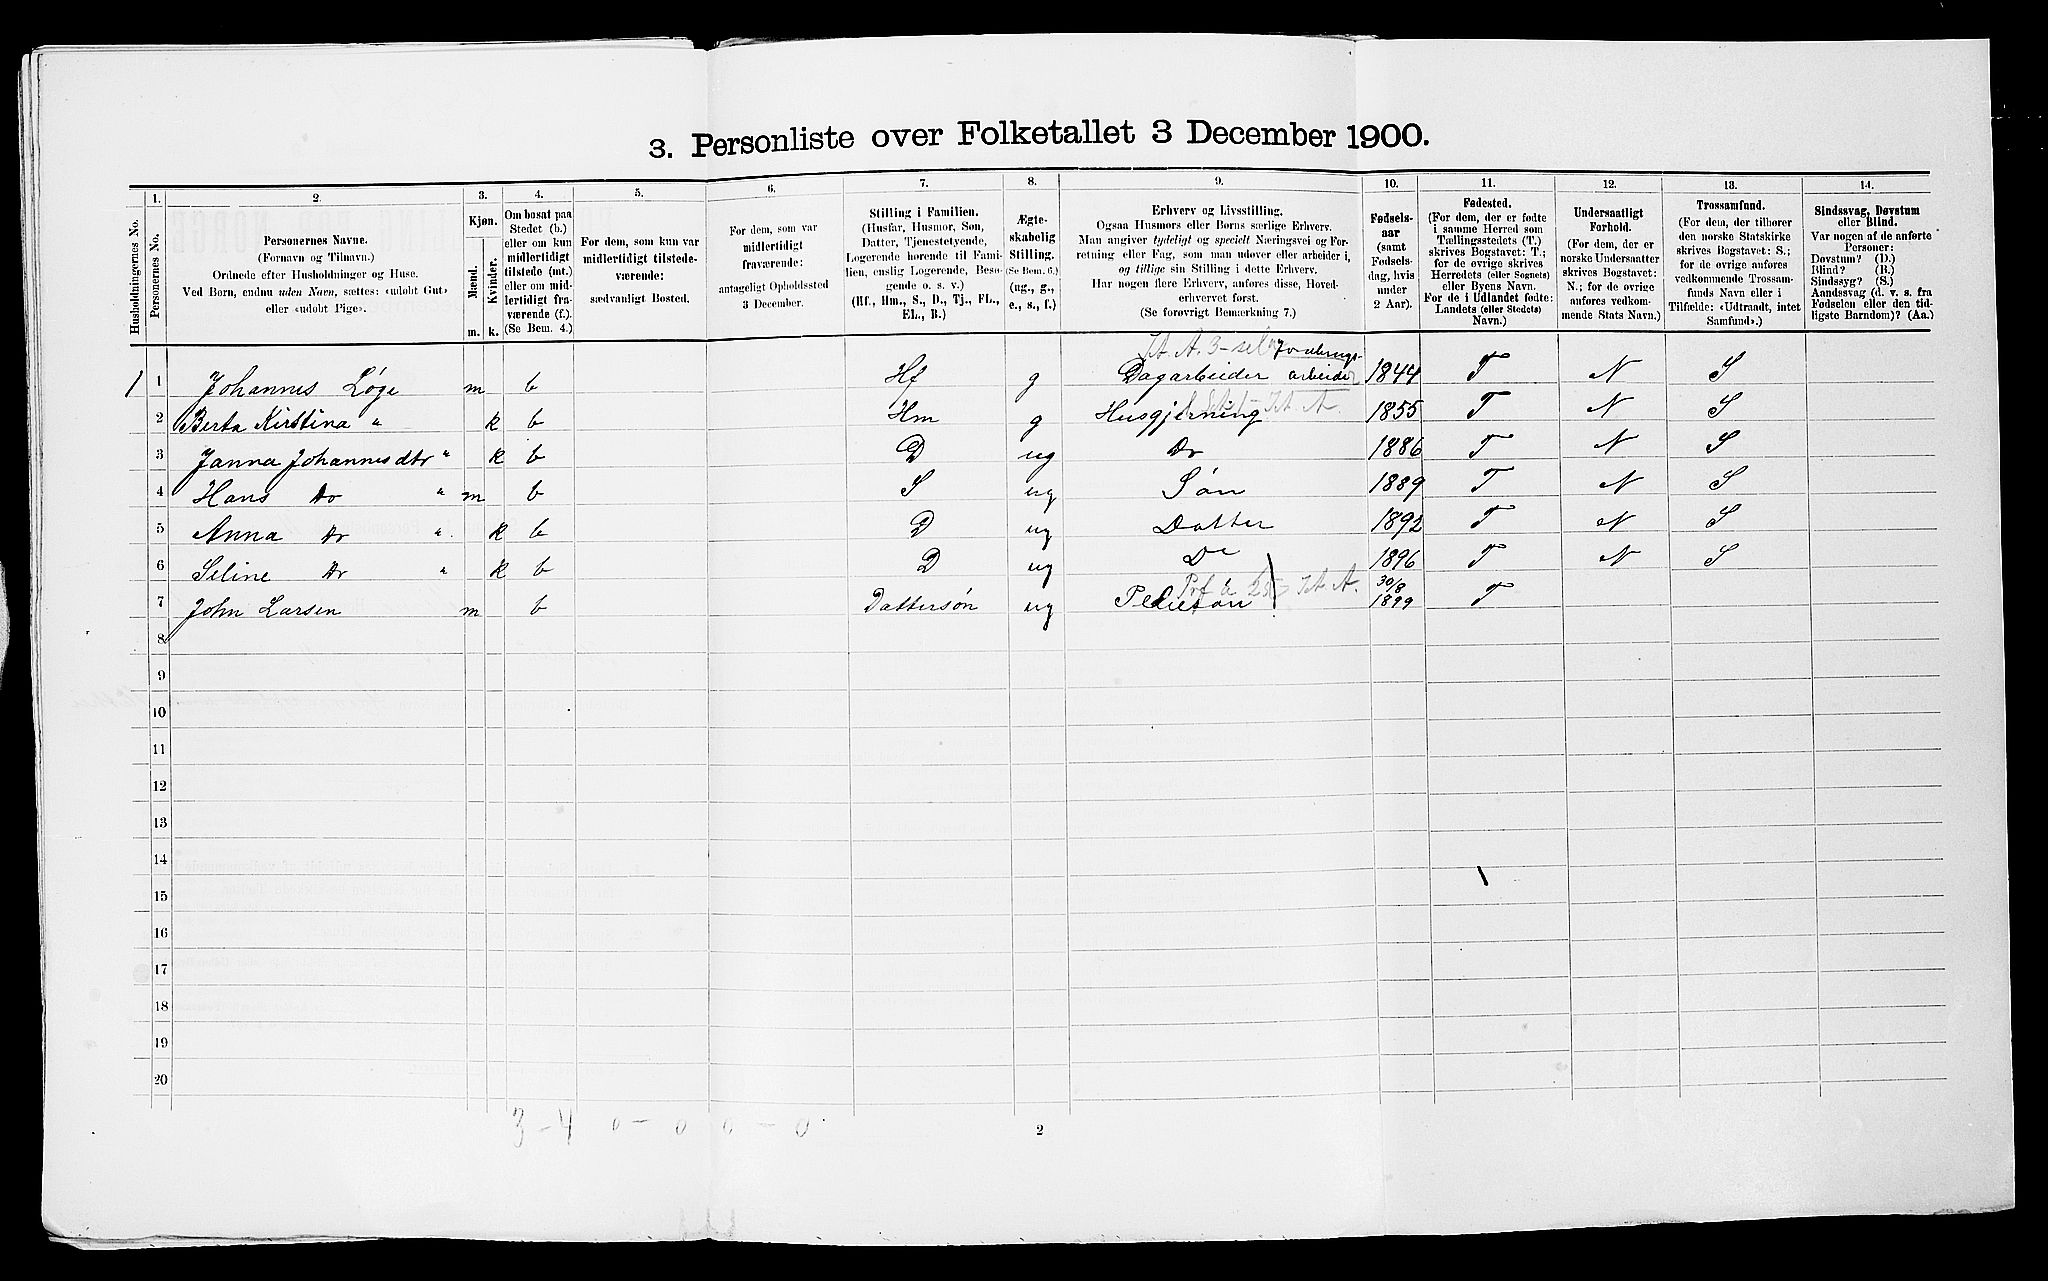 3. Personliste over Folketallet 3 December 1900.
1. 2. 3. 4. 5. 6. 7. 8. 9. 10. 11. 12. 13. 14.
Husholdningernes No.
Personernes No.
Personernes Navne.
(Fornavn og Tilnavn.)
Ordnede efter Husholdninger og Huse.
Ved Børn, endnu uden Navn, sættes: «udøbt Gut»
eller «udøbt Pige».
Kjøn.
Mænd.
Kvinder.
m. k.
Om bosat paa
Stedet (b.)
eller om kun
midlertidigt
tilstede (mt.)
eller om mid-
lertidigt fra-
værende (f.)
(Se Bem. 4.)
For dem, som kun var
midlertidigt tilstede-
værende:
sædvanligt Bosted.
For dem, som var
midlertidigt
fraværende:
antageligt Opholdssted
3 December.
Stilling i Familien.
(Husfar, Husmor, Søn,
Datter, Tjenestetyende,
Logerende hørende til Fami-
lien, enslig Logerende, Besø-
gende o. s. v.)
(Hf., Hm., S., D., Tj., FL.,
EL., B.)
Ægte-
skabelig
Stilling.
(Se Bem. 6.)
(ug., g.,
e., s., f.)
Erhverv og Livsstilling.
Ogsaa Husmors eller Børns særlige Erhverv.
Man angiver tydeligt og specielt Næringsvei og For-
retning eller Fag, som man udøver eller arbeider i,
og tillige sin Stilling i dette Erhverv.
Har nogen flere Erhverv, anføres disse, Hoved-
erhvervet først.
(Se forøvrigt Bemærkning 7.)
Fødsels-
aar
(samt
Fødsels-
dag, hvis
under
2 Aar).
Fødested.
(For dem, der er fødte
i samme Herred som
Tællingsstedets (T.)
skrives Bogstavet: T.;
for de øvrige skrives
Herredets (eller Sognets)
eller Byens Navn.
For de i Udlandet fødte:
Landets (eller Stedets)
Navn.)
Undersaatligt
Forhold.
(For dem, der er
norske Undersaatter
skrives Bogstavet:
N.; for de øvrige
anføres vedkom-
mende Stats Navn.)
Trossamfund.
(For dem, der tilhører
den norske Statskirke
skrives Bogstavet: S.;
for de øvrige anføres
vedkommende Trossam-
funds Navn eller i
Tilfælde: «Udtraadt, intet
Samfund».)
Sindssvag, Døvstum
eller Blind.
Var nogen af de anførte
Personer:
Døvstum? (D.)
Blind? (B.)
Sindssyg? (S.)
Aandssvag (d. v. s. fra
Fødselen eller den tid-
ligste Barndom)? (Aa.)
1 1 Johannes Løge m b Hf g Dagarbeider arbeide 1844 T N S
2 Berta Kirstina " k b Hm g Husgjerning 1855 T N S
3 Janna Johannesdtr " k b D ug Dr 1886 T N S
4 Hans Do " m b S ug Søn 1889 T N S
5 Anna Dr " k b D ug Datter 1892 T N S
6 Seline Dr " k b D ug Do 1896 T N S
7 John Larsen m b Dattersøn ug 30/8 1899 T
8
9
10
11
12
13
14
15
16
17
18
19
20
3 - 4 0 - 0 0 - 0
2